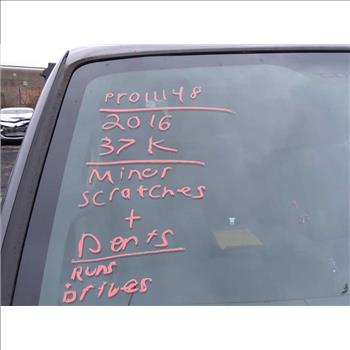 Pro11148
2016
37K
Minor
Scratches
+
Dents
Runs
+ Drives